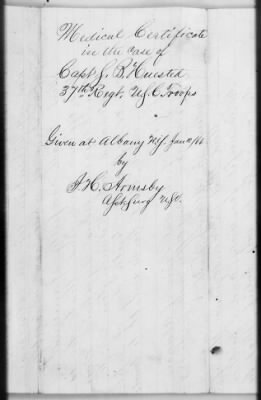 Medical Certificate
in the case of
Capt J. B. Husted
37th Regt. U.S.C. Troops
Given at Albany N.Y. Jan
by
J. H. Armsby
Asst Surg U.S.V.